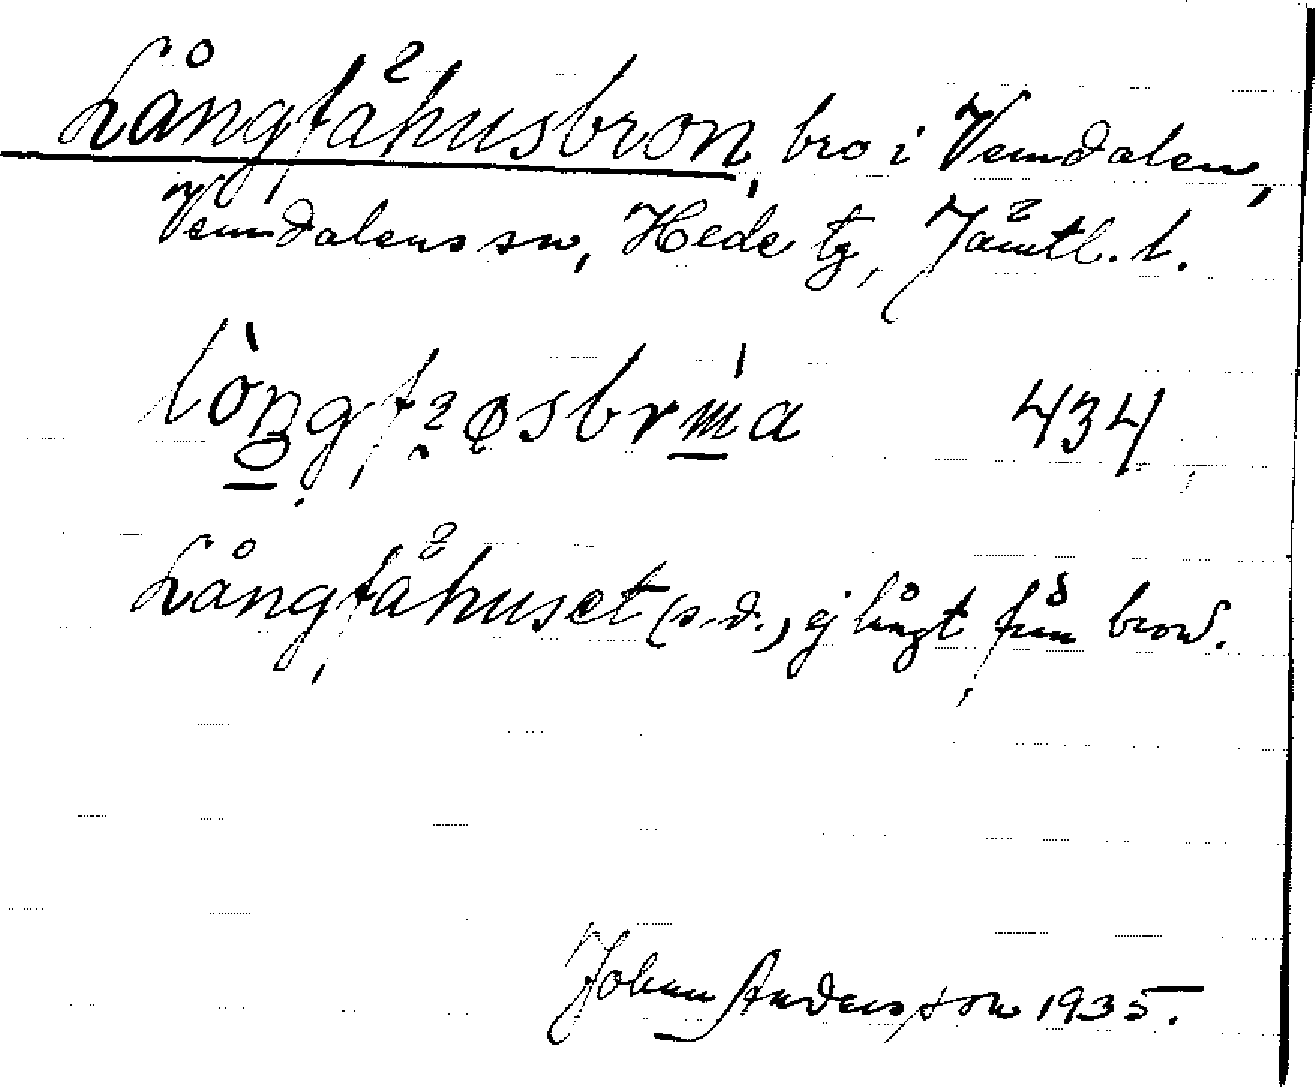 Långfähusbron, bro i Vemdalen,
Vemdalens sn, Hede tg, Jämtl. l.
434
Långfähuset (s.d.) ej långt från bron.
Johan Andersson 1935.